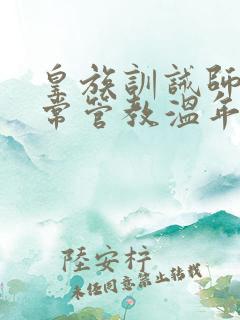 皇族訓誡師
常管教溫年
陸安梓
未經同意禁止轉載